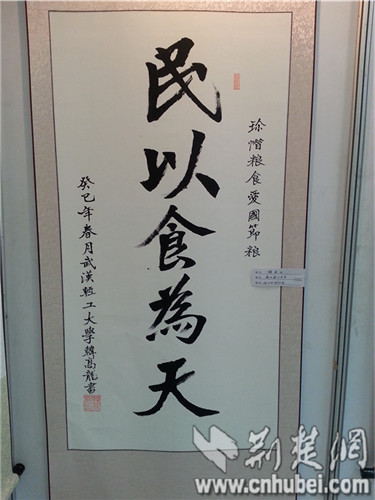 珎惜粮食爱國節粮
民以食為天
癸巳年春月武漢輕工大學韓高龍書
荆楚網
www.cnhubei.com